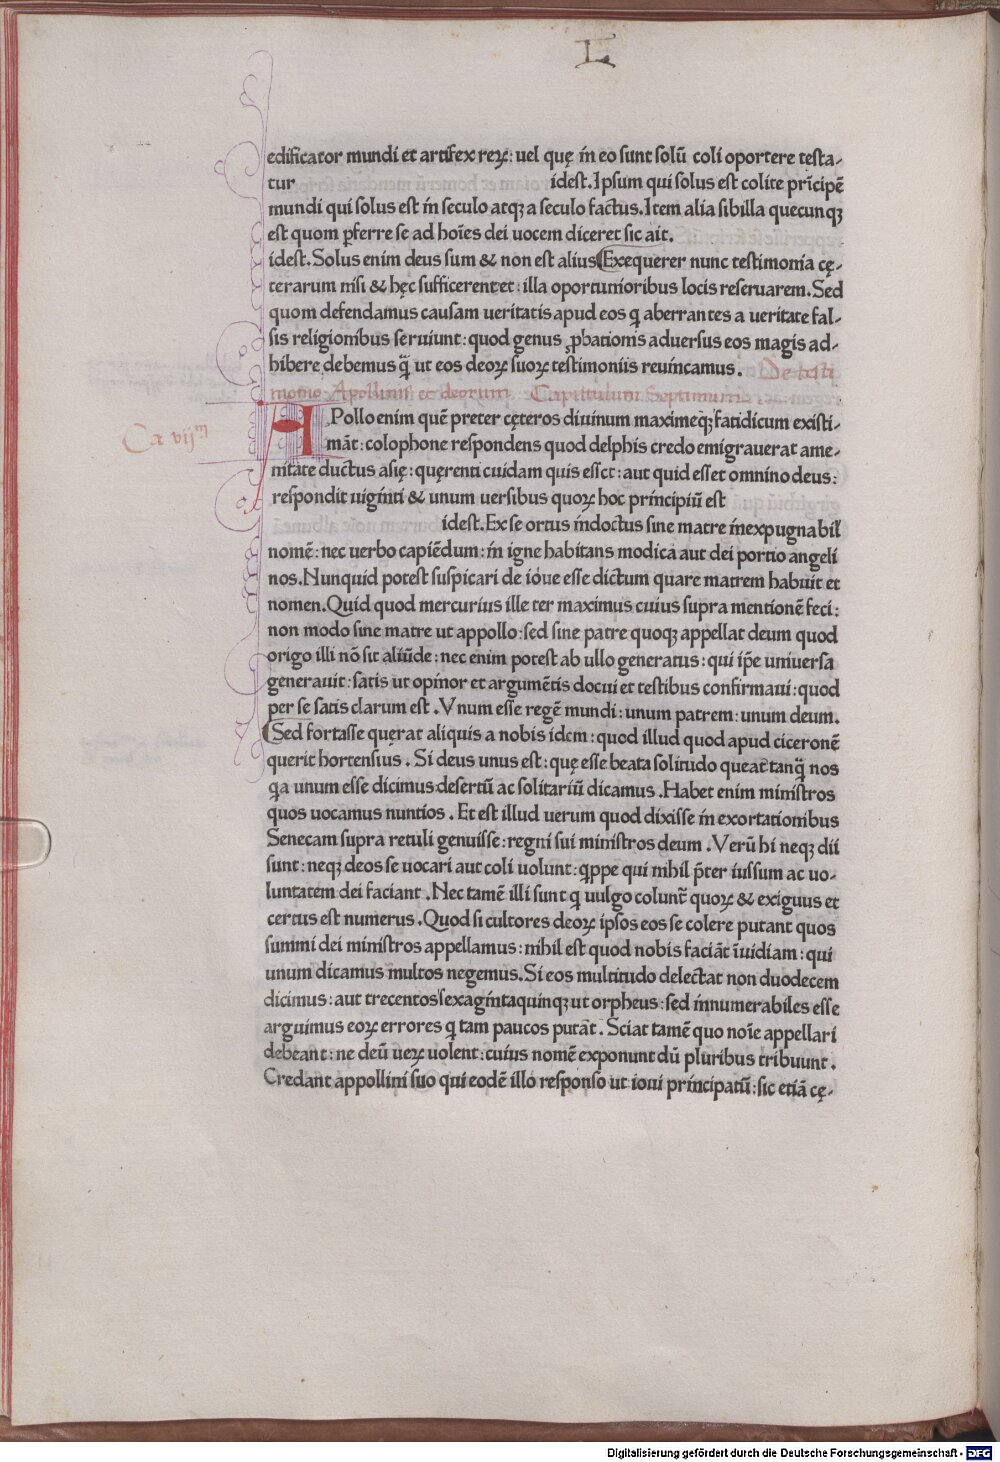 L
edificator mundi et artifex reꝝ: uel quę in eo sunt solū coli oportere testa-
tur idest. Ipsum qui solus est colite prīcipē
mundi qui solus est in seculo atqꝫ a seculo factus. Item alia sibilla quecunqꝫ
est quom ꝑferre se ad hoīes dei uocem diceret sic ait.
idest. Solus enim deus sum & non est alius Exequerer nunc testimonia cę-
terarum nisi & hęc sufficerent et: illa oportunioribus locis reseruarem. Sed
quom defendamus causam ueritatis apud eos q̄ aberrantes a ueritate fal-
sis religionibus seruiunt: quod genus ꝓbationis aduersus eos magis ad-
hibere debemus q̄̃ ut eos deoꝝ suoꝝ testimoniis reuincamus. De testi
monio Apollinis et deorum Capittulum Septimum
Ca vijᵐ
APollo enim quē preter cęteros diuinum maximeqꝫ fatidicum existi-
māt: colophone respondens quod delphis credo emigrauerat ame-
nitate ductus asię: quęrenti cuidam quis esset: aut quid esset omnino deus:
respondit uiginti & unum uersibus quoꝝ hoc principiū est
idest. Ex se ortus indoctus sine matre inexpugnabil
nomē: nec uerbo capiēdum: in igne habitans modica aut dei portio angeli
nos. Nunquid potest suspicari de ioue esse dictum quare matrem habuit et
nomen. Quid quod mercurius ille ter maximus cuius supra mentionē feci:
non modo sine matre ut appollo: sed sine patre quoqꝫ appellat deum quod
origo illi nō sit aliūde: nec enim potest ab ullo generatus: qui ip̄e uniuersa
generauit: satis ut opinor et argumētis docui et testibus confirmaui: quod
per se satis clarum est. Vnum esse regē mundi: unum patrem: unum deum.
Sed fortasse quęrat aliquis a nobis idem: quod illud quod apud ciceronē
querit hortensius. Si deus unus est: quę esse beata solitudo queat tanq̄̃ nos
q̄a unum esse dicimus desertū ac solitariū dicamus. Habet enim ministros
quos uocamus nuntios. Et est illud uerum quod dixisse in exortationibus
Senecam supra retuli genuisse: regni sui ministros deum. Verū hi neqꝫ dii
sunt: neqꝫ deos se uocari aut coli uolunt: q̄ppe qui nihil p̄ter iussum ac uo-
luntatem dei faciant. Nec tamē illi sunt q̄ uulgo colunt̄ quoꝝ & exiguus et
certus est numerus. Quod si cultores deoꝝ ipsos eos se colere putant quos
summi dei ministros appellamus: nihil est quod nobis faciāt īuidiam: qui
unum dicamus multos negemus. Si eos multitudo delectat non duodecem
dicimus: aut trecentos sexagintaquinqꝫ ut orpheus: sed innumerabiles esse
arguimus eoꝝ errores q̄ tam paucos putāt. Sciat tamē quo noīe appellari
debeant: ne deū ueꝝ uolent: cuius nomē exponunt dū pluribus tribuunt.
Credant appollini suo qui eodē illo responso ut ioui principatū: sic etiā cę-
Digitalisierung gefördert durch die Deutsche Forschungsgemeinschaft - DFG